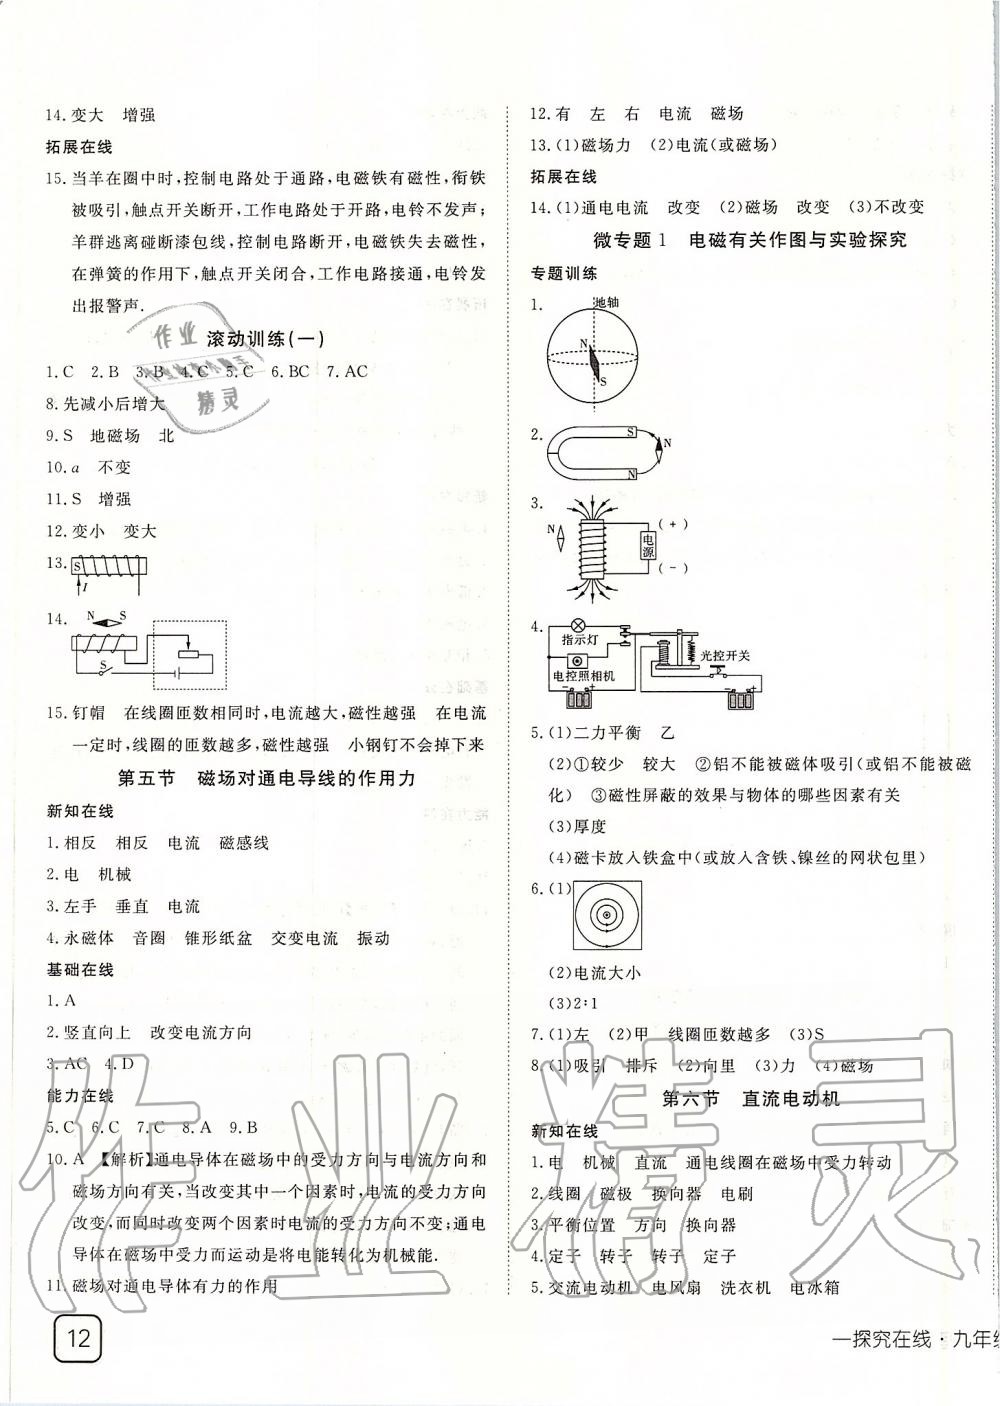 14.变大　增强
拓展在线
15.当羊在圈中时,控制电路处于通路,电磁铁有磁性,衔铁
被吸引,触点开关断开,工作电路处于开路,电铃不发声;
羊群逃离碰断漆包线,控制电路断开,电磁铁失去磁性,
在弹簧的作用下,触点开关闭合,工作电路接通,电铃发
出报警声.
滚动训练(一)
1.C　2.B　3.B　4.C　5.C　6.BC　7.AC
8.先减小后增大
9.S　地磁场　北
10.a　不变
11.S　增强
12.变小　变大
13.
S
I
14.
N　S
S
15.钉帽　在线圈匝数相同时,电流越大,磁性越强　在电流
一定时,线圈的匝数越多,磁性越强　小钢钉不会掉下来
第五节　磁场对通电导线的作用力
新知在线
1.相反　相反　电流　磁感线
2.电　机械
3.左手　垂直　电流
4.永磁体　音圈　锥形纸盆　交变电流　振动
基础在线
1.A
2.竖直向上　改变电流方向
3.AC　4.D
能力在线
5.C　6.C　7.C　8.A　9.B
10.A　【解析】通电导体在磁场中的受力方向与电流方向和
磁场方向有关,当改变其中一个因素时,电流的受力方向
改变,而同时改变两个因素时电流的受力方向不变;通电
导体在磁场中受力而运动是将电能转化为机械能.
11.磁场对通电导体有力的作用
12
12.有　左　右　电流　磁场
13.(1)磁场力　(2)电流(或磁场)
拓展在线
14.(1)通电电流　改变　(2)磁场　改变　(3)不改变
微专题1　电磁有关作图与实验探究
专题训练
1.
地轴
N
S
2.
S
N
N
3.
N
(+)
电源
(-)
4.
指示灯
电控照相机
光控开关
- +
- +
5.(1)二力平衡　乙
(2)①较少　较大　②铝不能被磁体吸引(或铝不能被磁
化)　③磁性屏蔽的效果与物体的哪些因素有关
(3)厚度
(4)磁卡放入铁盒中(或放入含铁、镍丝的网状包里)
6.(1)
(2)电流大小
(3)2∶1
7.(1)左　(2)甲　线圈匝数越多　(3)S
8.(1)吸引　排斥　(2)向里　(3)力　(4)磁场
第六节　直流电动机
新知在线
1.电　机械　直流　通电线圈在磁场中受力转动
2.线圈　磁极　换向器　电刷
3.平衡位置　方向　换向器
4.定子　转子　转子　定子
5.交流电动机　电风扇　洗衣机　电冰箱
一探究在线·九年级
作业
精灵
作业精灵